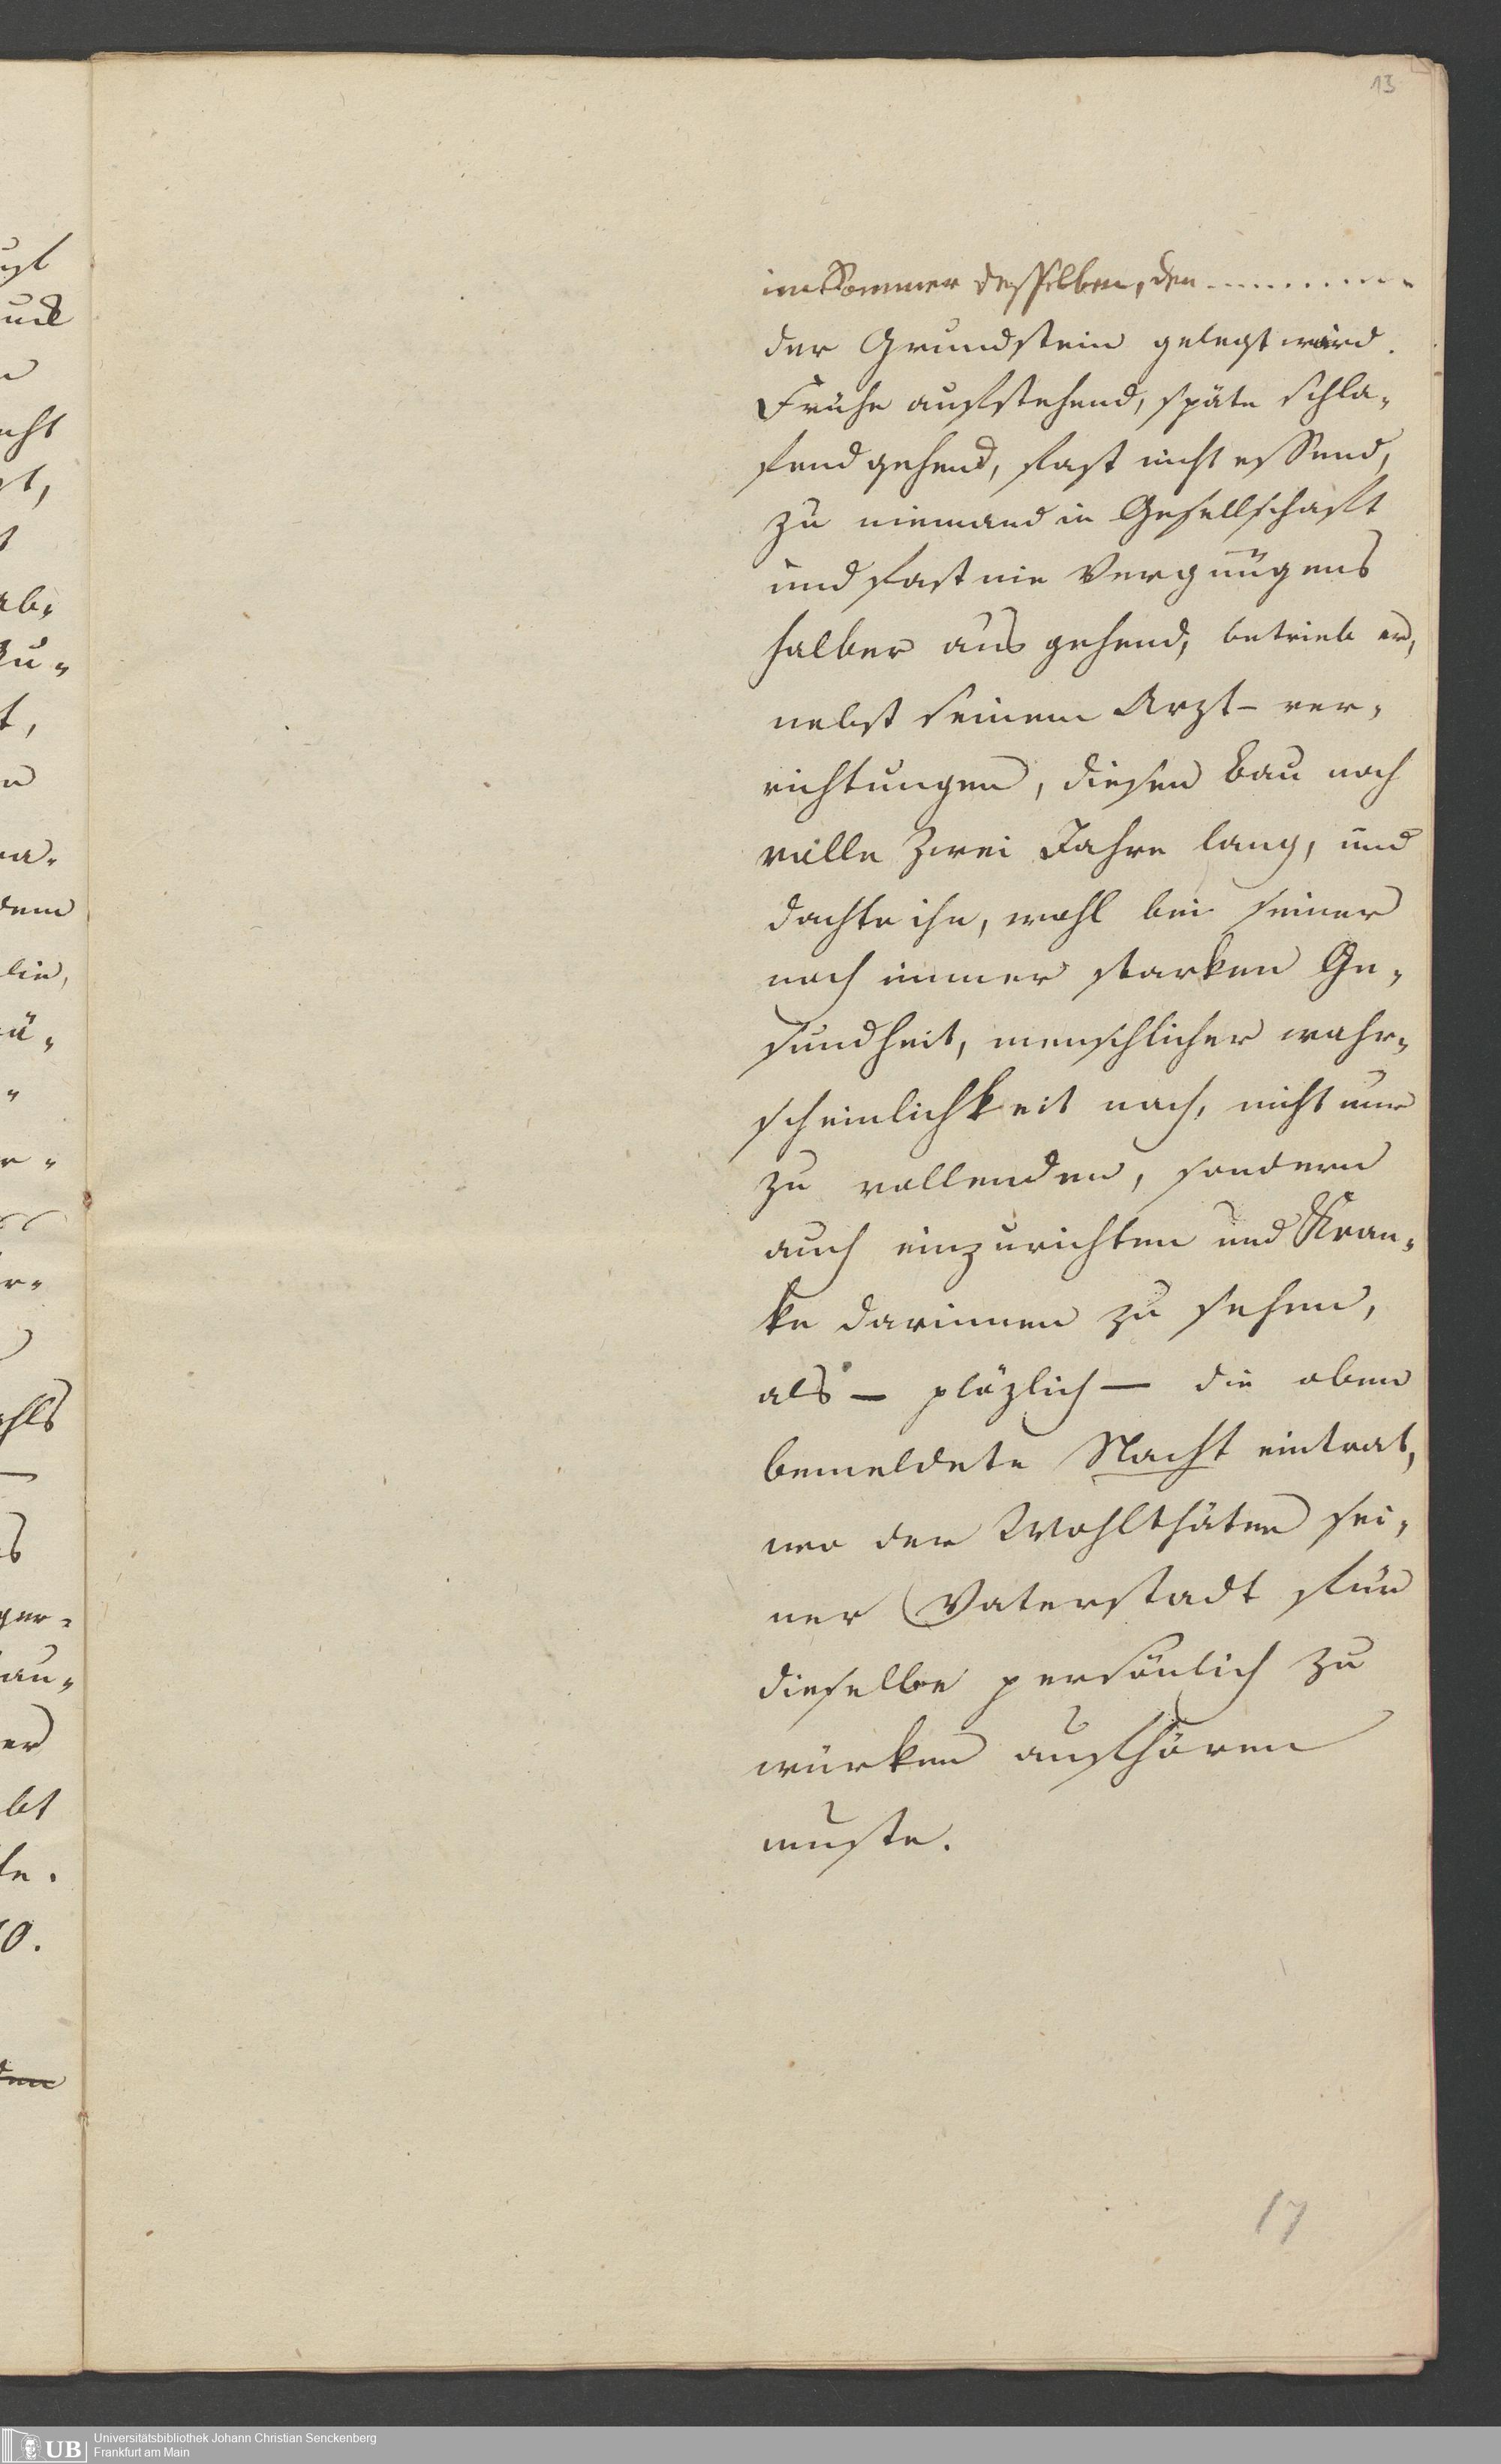 13
im Sommer desselben, den ..........
der Grundstein gelegt ward.
Frühe aufstehend, späte schla-
fend gehend, fast nicht essend,
zu niemand in Gesellschaft
und fast nie Vergnügens
halber aus gehend, betrieb er,
nebst seinem Arzt- ver-
richtungen, diesen Bau noch
volle zwei Jahre lang, und
dachte ihn, wohl bei seiner
noch immer starken Ge-
sundheit, menschlicher wahr-
scheinlichkeit nach, nicht nur
zu vollenden, sondern
auch einzurichten und Kran-
ke darinnen zu sehen,
als — plözlich — die oben
bemeldete Nacht eintrat,
wo der Wohlthäter sei-
ner Vaterstadt für
dieselbe persönlich zu
würken aufhören
muste.
17
UB
Universitätsbibliothek Johann Christian Senckenberg
Frankfurt am Main